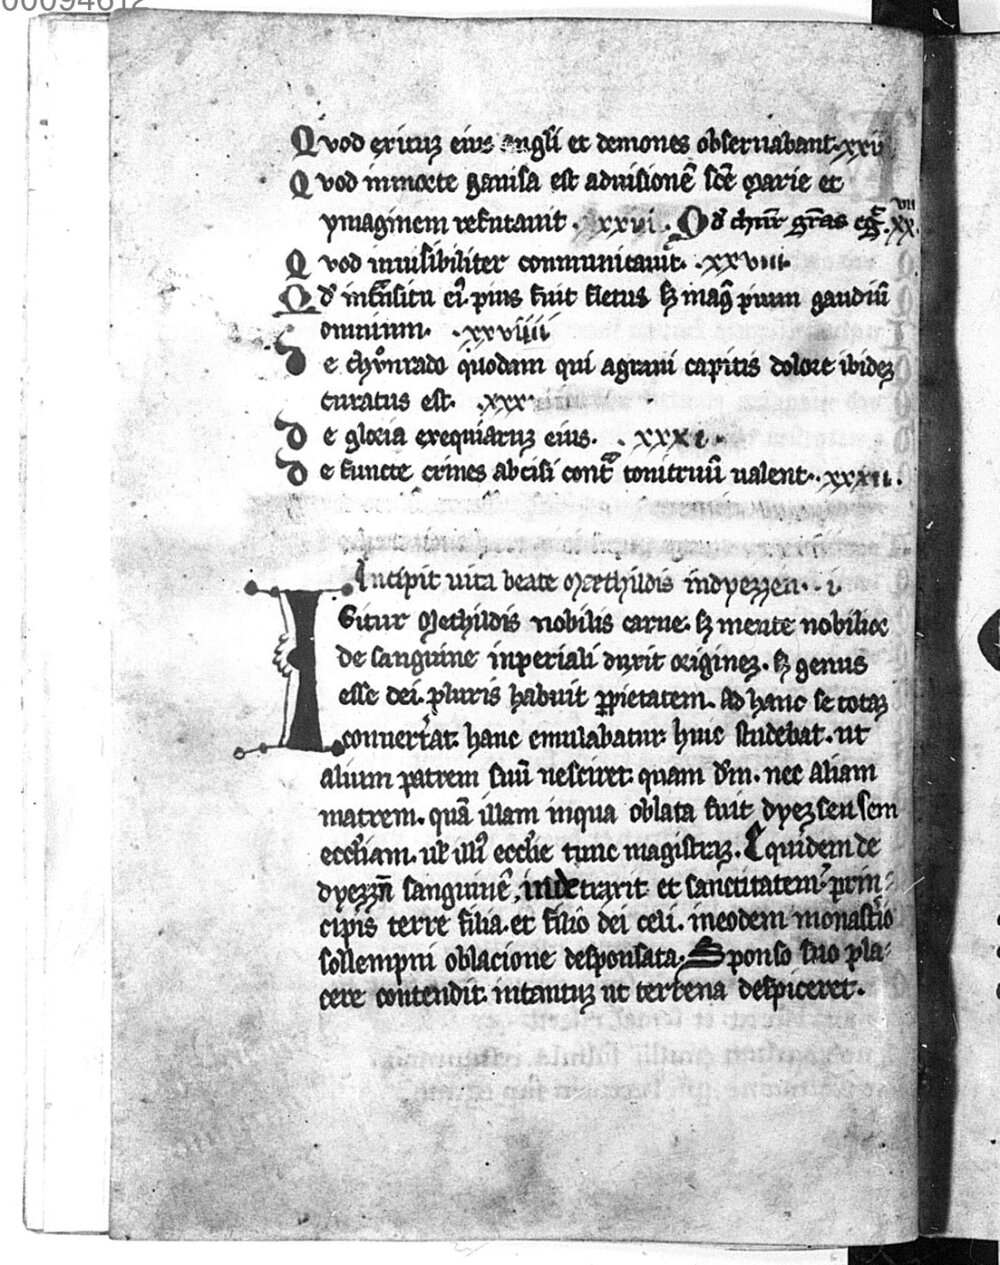 00094612
Quod exituʒ eius angli et demones obseruabant. xxv
Quod in nocte gauisa est aduisionē sc̄e Marie et
ymaginem refutauit. xxvi. Qd̓ chūr gr̄as eg̓. xx
vii
Quod inuisibiliter communicauit. xxviii.
Qd̓ in trāsitu ei᷒ pius fuit fletus sʒ mag̓ pium gaudiū
omnium. xxviiii
De chůnrado quodam qui agraui capitis dolore ibideʒ
curatus est. xxx
De gloria exequiaruʒ eius. xxxi.
De functe crines abcisi cont̓ tonitruū ualent. xxxii.
Incipit uita beate Mecthildis indyezzen. i.
Igitur Mecthildis nobilis carne. sʒ mente nobilior
de sanguine inperiali duxit origineʒ. sʒ genus
esse dei. pluris habuit ꝓprietatem. Ad hanc se totaʒ
conuertat. hanc emulabatur. huic studebat. ut
alium patrem suū nesciret. quam dm̄. nec aliam
matrem. quā illam inqua oblata fuit dyezsensem
eccl̄iam. ul̓ illi᷒ eccl̄ie tunc magistraʒ. Equidem de
dyezzn̄ sanguinē, inde traxit et sanctitatem. prin
cipis terre filia. et filio dei celi. in eodem monast̓io
sollempni oblacione desponsata. Sponso suo pla
cere contendit. intantuʒ ut terrena despiceret.